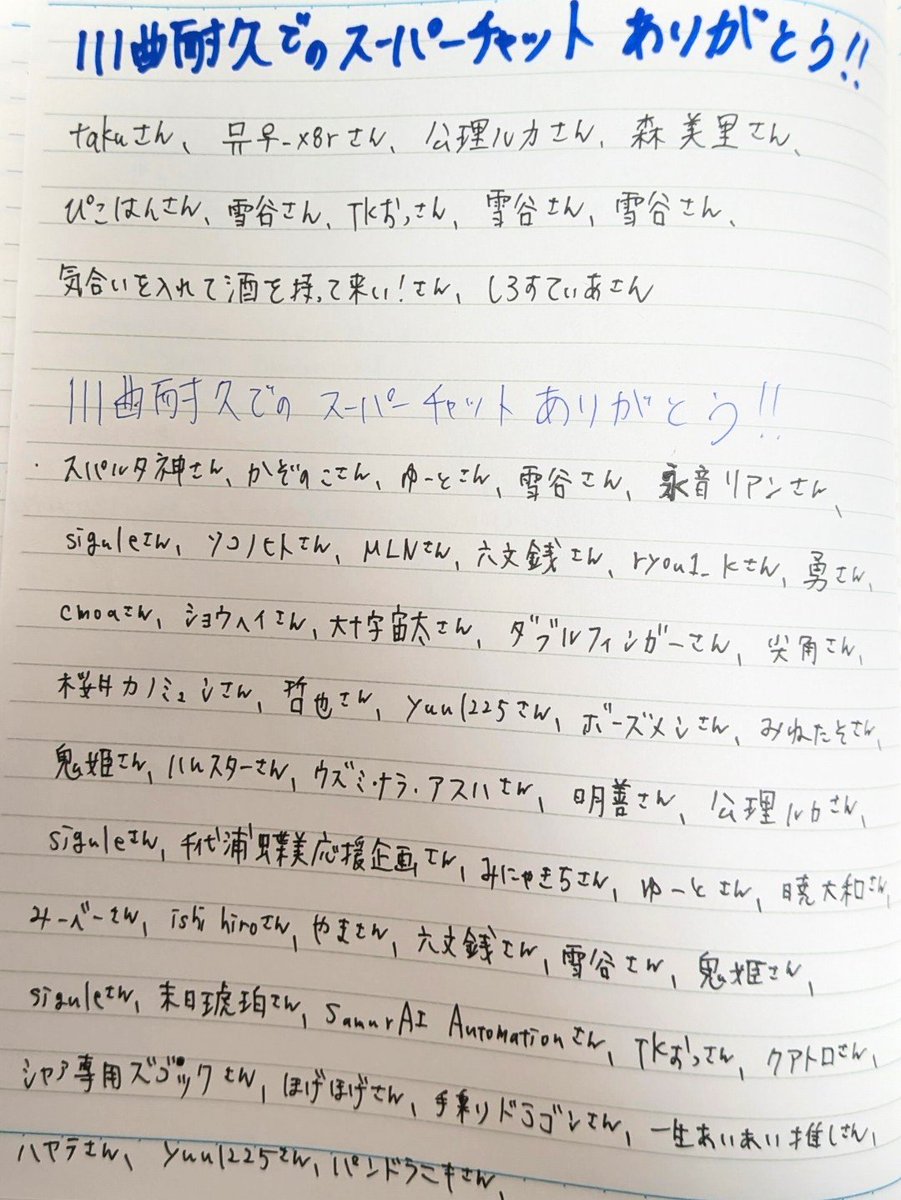 111曲耐久でのスーパーチャット ありがとう!!
takuさん、뮤우-x8rさん、公理ルカさん、森美里さん、
ぴこはんさん、雪谷さん、TKおっさん、雪谷さん、雪谷さん、
気合いを入れて酒を持って来い!さん、しろすてぃあさん
111曲耐久でのスーパーチャットありがとう!!
スパルタ神さん、かぞのこさん、ゆーとさん、雪谷さん、永音リアンさん、
siguleさん、ソコノヒトさん、MLNさん、六文銭さん、ryou1_kさん、勇さん、
cmoaさん、ショウヘイさん、大十字宙太さん、ダブルフィンガーさん、尖角さん、
桜井カノミュンさん、哲也さん、yuu1225さん、ボーズメンさん、みねたそさん、
鬼姫さん、ハムスターさん、ウズミ・ナラ・アスハさん、明善さん、公理ルカさん、
siguleさん、千代浦蝶美応援企画さん、みにゃきちさん、ゆーとさん、暁大和さん、
みーべーさん、ishi hiroさん、やまさん、六文銭さん、雪谷さん、鬼姫さん、
siguleさん、末日琥珀さん、SamurAI Automationさん、TKおっさん、クアトロさん、
シャア専用ズゴックさん、ほげほげさん、手乗りドラゴンさん、一生あいあい推しさん、
ハヤテさん、yuu1225さん、パンドラこキさん、